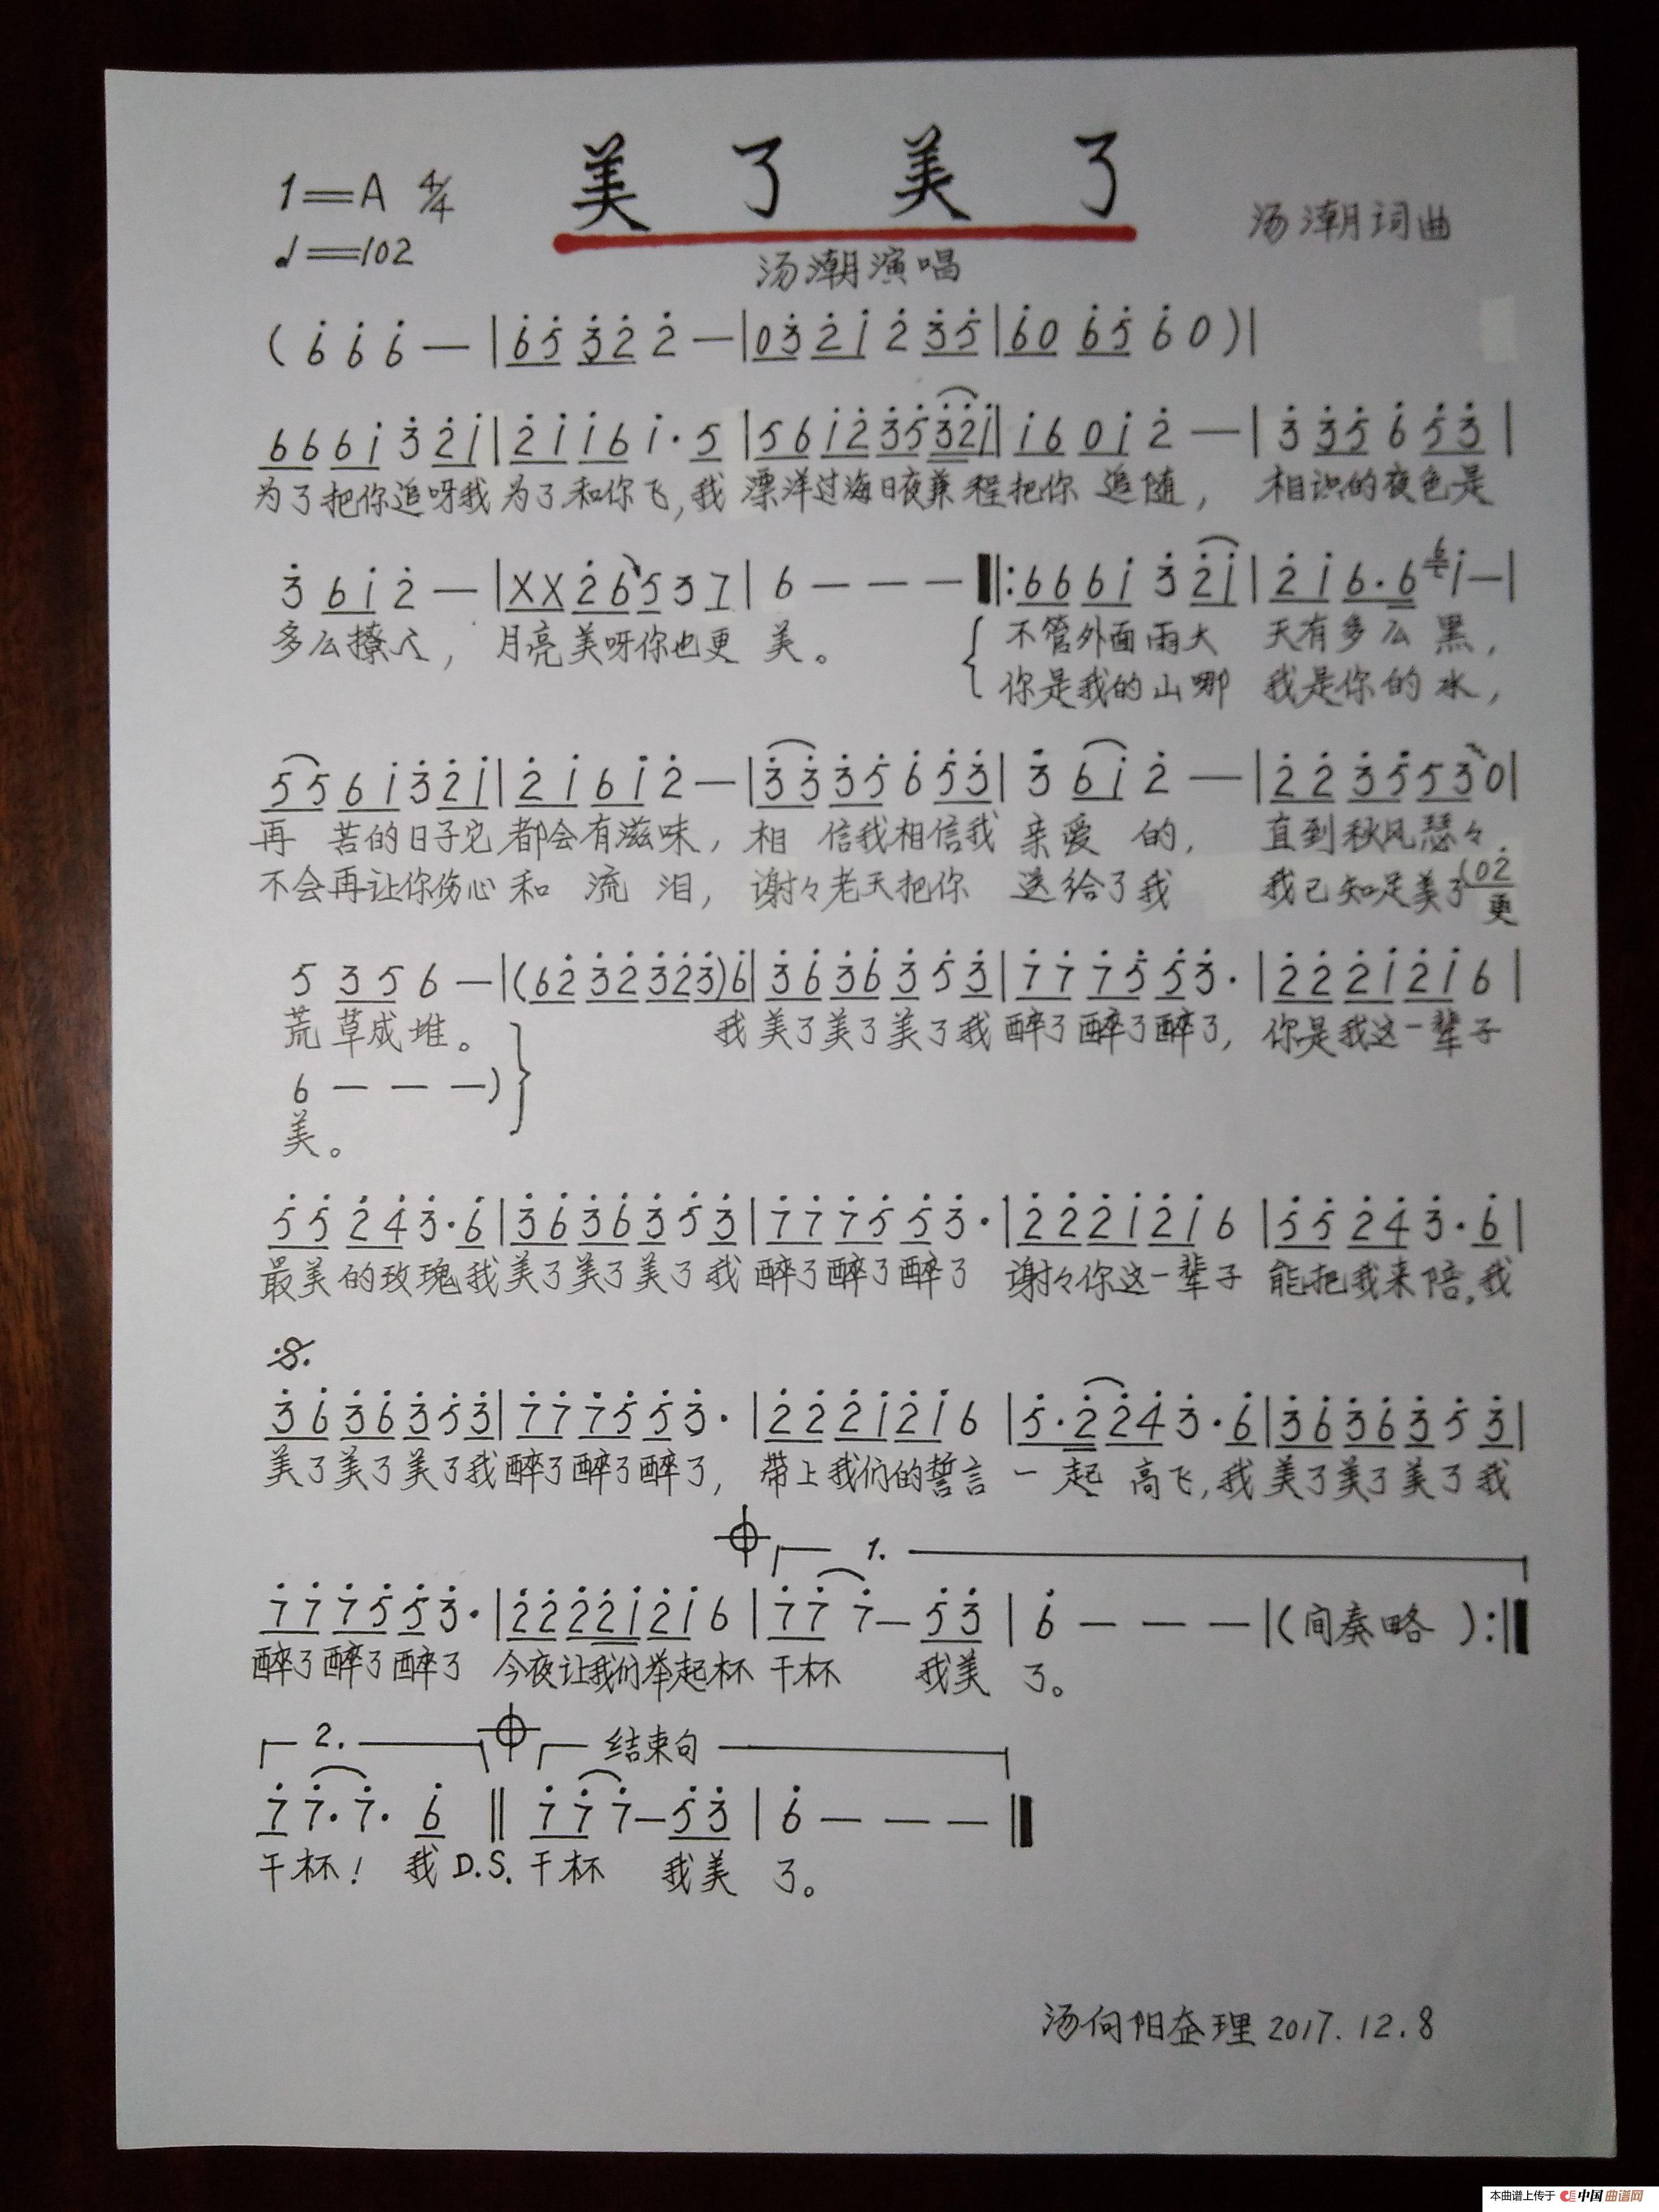 美了美了
1=A 4/4
♩=102
汤潮词曲
汤潮演唱
( 6̇ 6̇ 6̇ — | 6̇5̇ 3̇2̇ 2̇ — | 03̇ 2̇1̇ 2̇ 3̇5̇ | 6̇0 6̇5̇ 6̇ 0 ) |
66 61̇ 3̇ 2̇1̇ | 2̇1̇ 1̇6 1̇· 5 | 56 1̇2̇ 3̇5̇ 3̇2̇1̇ | 1̇6 01̇ 2̇ — | 3̇ 3̇5̇ 6̇ 5̇3̇ |
为了把你追呀我 为了和你飞,我 漂洋过海日夜兼程把你 追随, 相识的夜色是
3̇ 61̇ 2̇ — | XX 2̇6 5 3 7 | 6 — — — ‖: 66 61̇ 3̇ 2̇1̇ | 2̇1̇ 6·6 6 1̇ — |
多么撩人, 月亮美呀你也更 美。 不管外面雨大 天有多么 黑,
你是我的山哪 我是你的 水,
55 61̇ 3̇ 2̇1̇ | 2̇1̇ 61̇ 2̇ — | 3̇3̇ 3̇5̇ 6̇ 5̇3̇ | 3̇ 61̇ 2̇ — | 2̇2̇ 3̇5̇ 53̇ 0 |
再 苦的日子它 都会有滋味, 相 信我相信我 亲爱 的, 直到秋风瑟々
不会再让你伤心 和 流 泪, 谢々老天把你 送给了我 我已知足美了 (02̇
更
5 35 6 — | (62̇ 3̇2̇ 3̇2̇3̇) 6̇ | 3̇6̇ 3̇6̇ 3̇ 5̇ 3̇ | 7̇7̇ 7̇5̇ 5̇3̇· | 2̇2̇ 2̇1̇ 2̇1̇ 6 |
荒 草成堆。 我 美了美了美了我 醉了醉了醉了, 你是我这一辈子
6 — — — )
美。
5̇5̇ 2̇4̇ 3̇· 6̇ | 3̇6̇ 3̇6̇ 3̇ 5̇ 3̇ | 7̇7̇ 7̇5̇ 5̇ 3̇· | 2̇2̇ 2̇1̇ 2̇1̇ 6 | 5̇5̇ 2̇4̇ 3̇· 6̇ |
最美的玫瑰我美了美了美了我 醉了醉了醉了 谢々你这一辈子 能把我来陪,我
3̇6̇ 3̇6̇ 3̇ 5̇ 3̇ | 7̇7̇ 7̇5̇ 5̇ 3̇· | 2̇2̇ 2̇1̇ 2̇1̇ 6 | 5̇·2̇ 2̇4̇ 3̇· 6̇ | 3̇6̇ 3̇6̇ 3̇ 5̇ 3̇ |
美了美了美了我醉了醉了醉了, 带上我们的誓言 一起 高飞,我 美了美了美了我
1.
7̇7̇ 7̇5̇ 5̇ 3̇· | 2̇2̇ 2̇2̇1̇ 2̇1̇ 6 | 7̇7̇ 7̇ — 5̇3̇ | 6̇ — — — | (间奏略) :‖
醉了醉了醉了 今夜让我们举起杯 干杯 我美 了。
2. 结束句
7̇ 7̇· 7̇· 6̇ ‖ 7̇7̇ 7̇ — 5̇3̇ | 6̇ — — — ‖
干杯! 我 D.S. 干杯 我美 了。
汤向阳整理 2017.12.8
本曲谱上传于 中国曲谱网